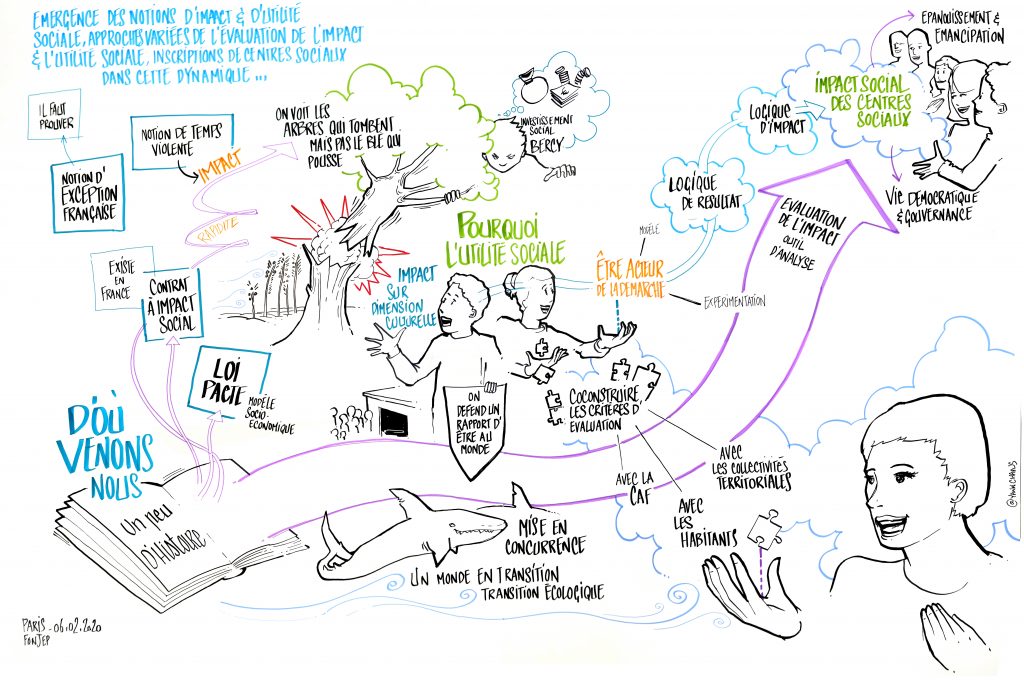 EMERGENCE DES NOTIONS D'IMPACT & D'UTILITÉ
SOCIALE, APPROCHES VARIÉES DE L'ÉVALUATION DE L'IMPACT
& L'UTILITÉ SOCIALE, INSCRIPTIONS DE CENTRES SOCIAUX
DANS CETTE DYNAMIQUE ...
IL FAUT
PROUVER
NOTION D'
EXCEPTION
FRANÇAISE
NOTION DE TEMPS
VIOLENTÉ
IMPACT
RAPIDITÉ
ON VOIT LES
ARBRES QUI TOMBENT
MAIS PAS LE BLÉ QUI
POUSSE
INVESTISSEMENT
SOCIAL
BERCY
EXISTE
EN
FRANCE
CONTRAT
À IMPACT
SOCIAL
LOI
PACTE
MODÈLE
SOCIO-
ECONOMIQUE
D'OÙ
VENONS
NOUS
Un peu
d'Histoire
IMPACT
SUR
DIMENSION
CULTURELLE
POURQUOI
L'UTILITÉ SOCIALE
ON
DEFEND UN
RAPPORT D'
ÊTRE AU
MONDE
MODÈLE
ÊTRE ACTEUR
DE LA DEMARCHE
EXPERIMENTATION
COCONSTRUIRE,
LES CRITÈRES D'
EVALUATION
AVEC LA
CAF
AVEC
LES
HABITANTS
AVEC
LES COLLECTIVITÉS
TERRITORIALES
MISE EN
CONCURRENCE
UN MONDE EN TRANSITION
TRANSITION ÉCOLOGIQUE
LOGIQUE
DE RESULTAT
LOGIQUE
D'IMPACT
EVALUATION
DE L'IMPACT
OUTIL
D'ANALYSE
IMPACT SOCIAL
DES CENTRES
SOCIAUX
EPANOUISSEMENT &
EMANCIPATION
VIE DEMOCRATIQUE
& GOUVERNANCE
PARIS - 06.02.2020
FONJEP